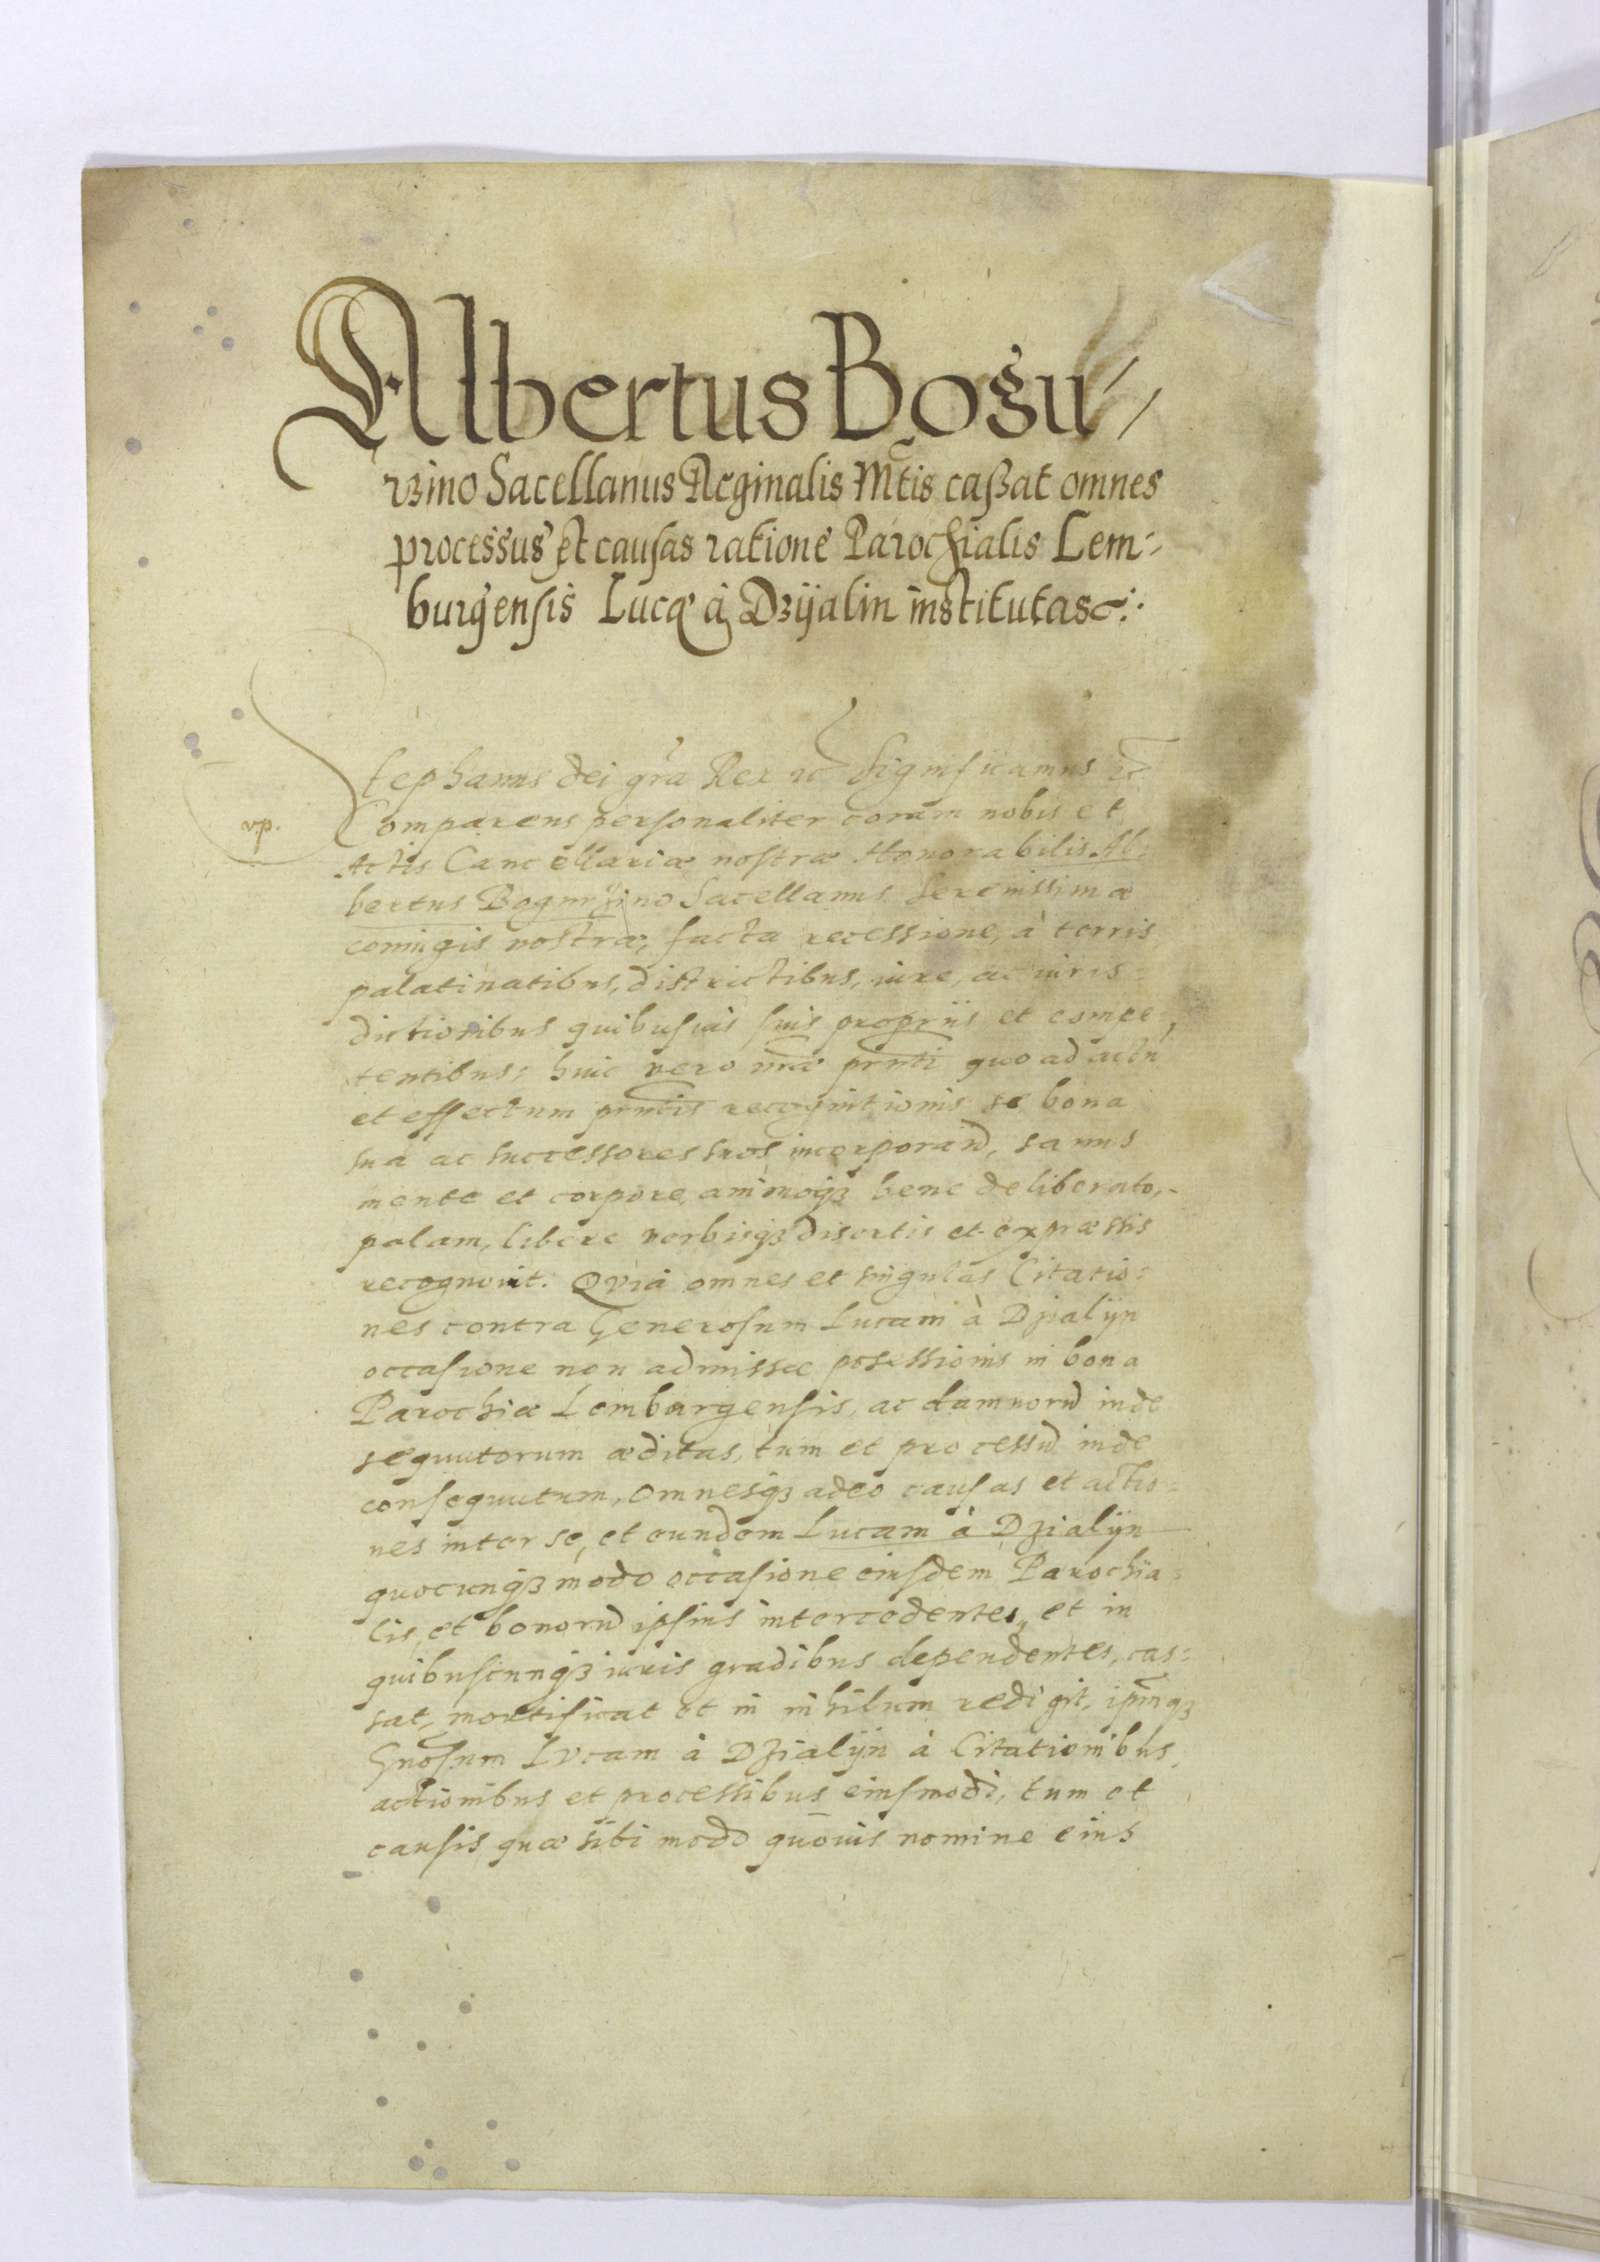 Albertus Bogu-
rzino Sacellanus Reginalis Mtis caßat omnes
processus et causas ratione Parochialis Lem-
burgensis Lucæ à Dzijalin institutas
Stephanus dei gra Rex ꝛc Significamus ꝛc
vp.
Comparens personaliter coram nobis et
Actis Cancellariæ nostræ Honorabilis Al-
bertus Bogurzino Sacellanus Serenissimæ
coniugis nostræ, facta recessione, à terris
palatinatibus, districtibus, iure, ac iuris-
dictionibus quibusuis suis proprijs et compe-
tentibus; huic vero nræ prnti quo ad actū
et effectum prntis recognitionis se bona
sua ac successores suos incorporand, sanus
mente et corpore animoqȝ bene deliberato,
palam, libere verbisqȝ disertis et expræssis
recognouit. Quia omnes et singulas Citatio-
nes contra Generosum Lucam à Dzialijn
occasione non admissæ posessionis in bona
Parochiæ Lemburgensis, ac damnorū inde
sequutorum æditas, tum et processū inde
consequutum, omnesqȝ adeo causas et actio-
nes inter se, et eundem Lucam à Dzialijn
quocunqȝ modo occasione eiusdem Parochia-
lis, et bonorū ipsius intercedentes, et in
quibuscunqȝ iuris gradibus dependentes, cas-
sat, mortificat et in nihilum redigit, ipmqȝ
Gnosum Lucam à Dzialijn à Citationibus,
actionibus et processibus eiusmodi, tum et
causis quæ sibi modo quouis nomine eius